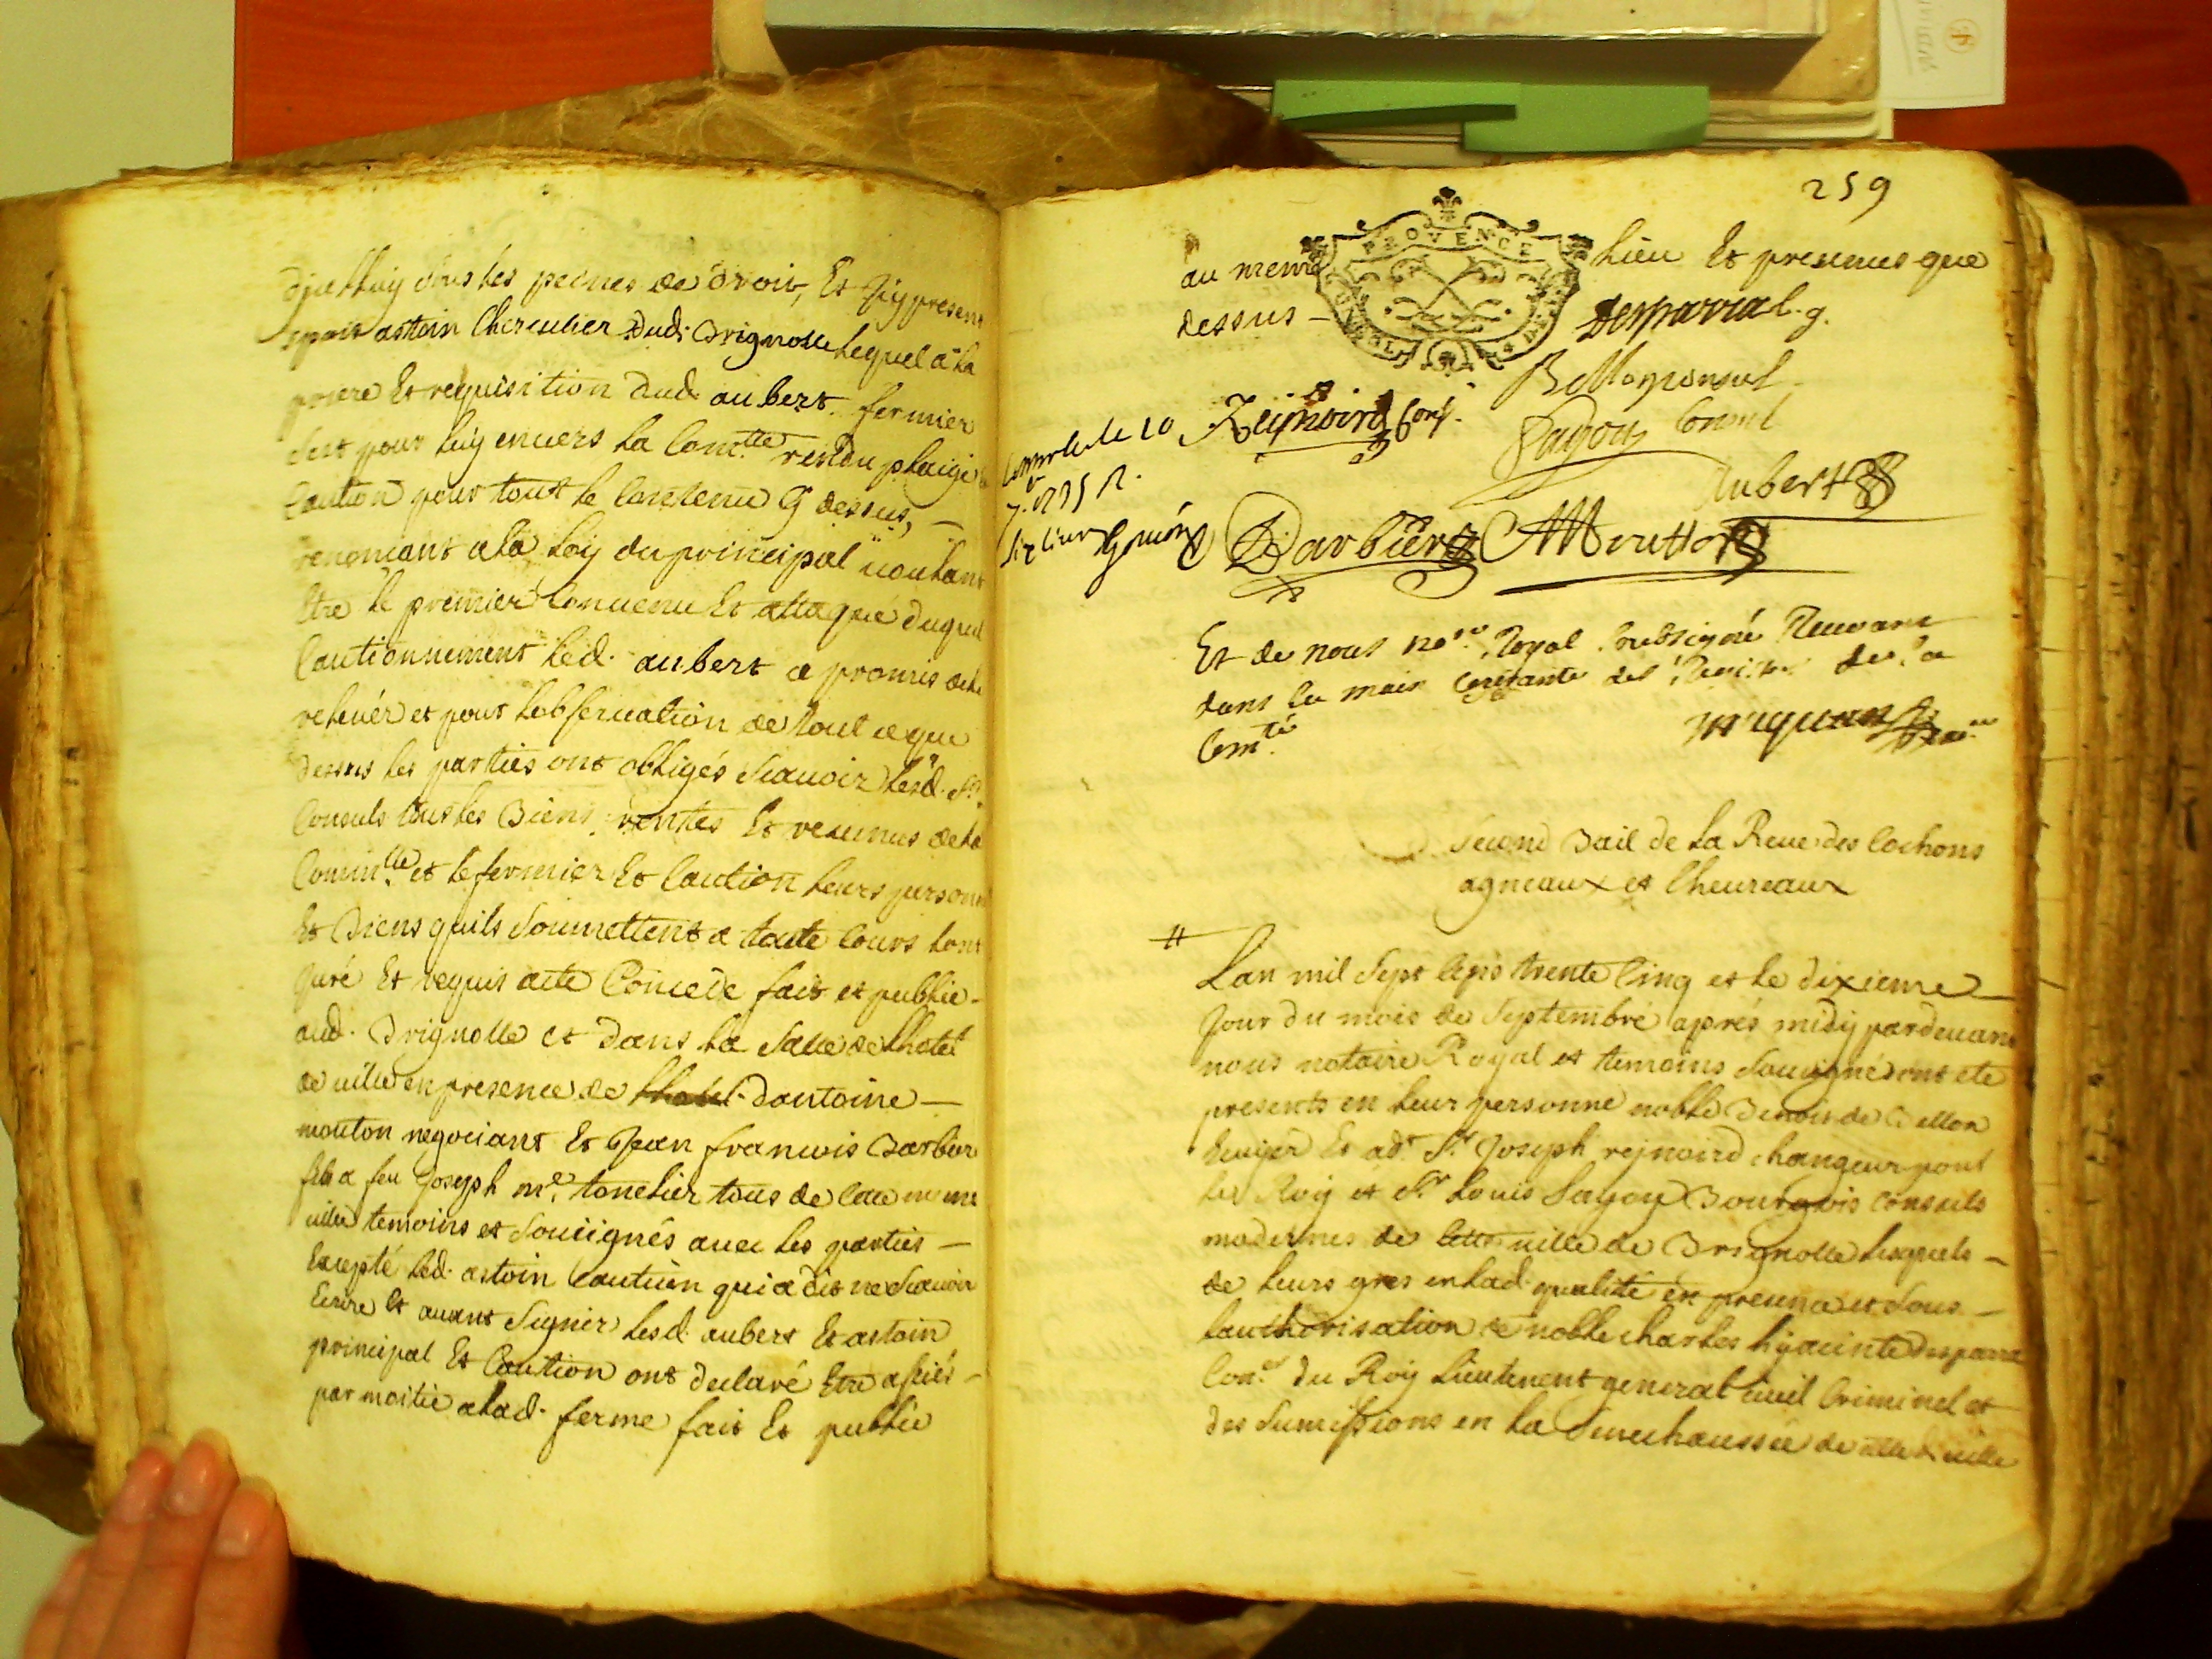 sous les peines de droit, Et icy present
astoin Cherculier dud. Brignolle lequel a la
priere Et requisition dud aubert fermier
sest pour luy envers la Com.tte rendu plaige
Caution pour tout le Contenu cy dessus, —
renoncant a la loy du principal voulant
Etre le premier Convenu Et attaqué duquel
Cautionnement led. aubert a promis de le
relever et pour lobservation de tout ce que
dessus les parties ont obligés scavoir lesd. srs
Consuls tous les Biens, rentes Et revenus de la
Comm.tte et le fermier Et Caution leurs personnes
Et Biens quils soumettent a toute Cours lont
juré Et requis acte Concedé fait et publié -
aud. Brignolle et dans la salle de lhotel
de ville en presence de lhotel dantoine —
mouton negociant Et Jean francois Barbier
fils a feu Joseph me. tonelier tous de cette meme
ville temoins et soussignés avec les parties —
Excepté led. astoin Caution qui a dit ne scavoir
Ecrire Et avant signer lesd. aubert Et astoin
principal Et Caution ont declaré Etre assiés -
par moitié a lad. ferme fait Et publié
259
PROVENCE
au meme lieu Et presences que
dessus — Desparra l. g.
Bellon consul
Reijnoird Conl.
Fayou Consul
Controlle le 10
7.bre 1735 R.
six livres
Aubert
Barbier Moutton
Et de nous no.re Royal soubsigné Recevant
dans la main Courante des Ecritures de la
Com.té
Second Bail de La Reve des Cochons
agneaux et Chevreaux
#
Lan mil sept cens trente cinq et le dixieme —
jour du mois de septembre aprés midy pardevant
nous notaire Royal et temoins souvignés ont eté
presents en leur personne noble Benoit de Bellon
Ecuyer Et ad.t Sr. Joseph rejnoird changeur pour
le Roy et Sr. Louis Fayou Bourgois Consuls
modernes de cette ville de Brignolle lesquels —
de leurs gres en lad. qualité en presence et sous —
lauthorisation de noble charles hyacinte desparra
Con.er du Roy Lieutenent general civil Criminel et
des sumissions en la senechaussée de cette d. ville